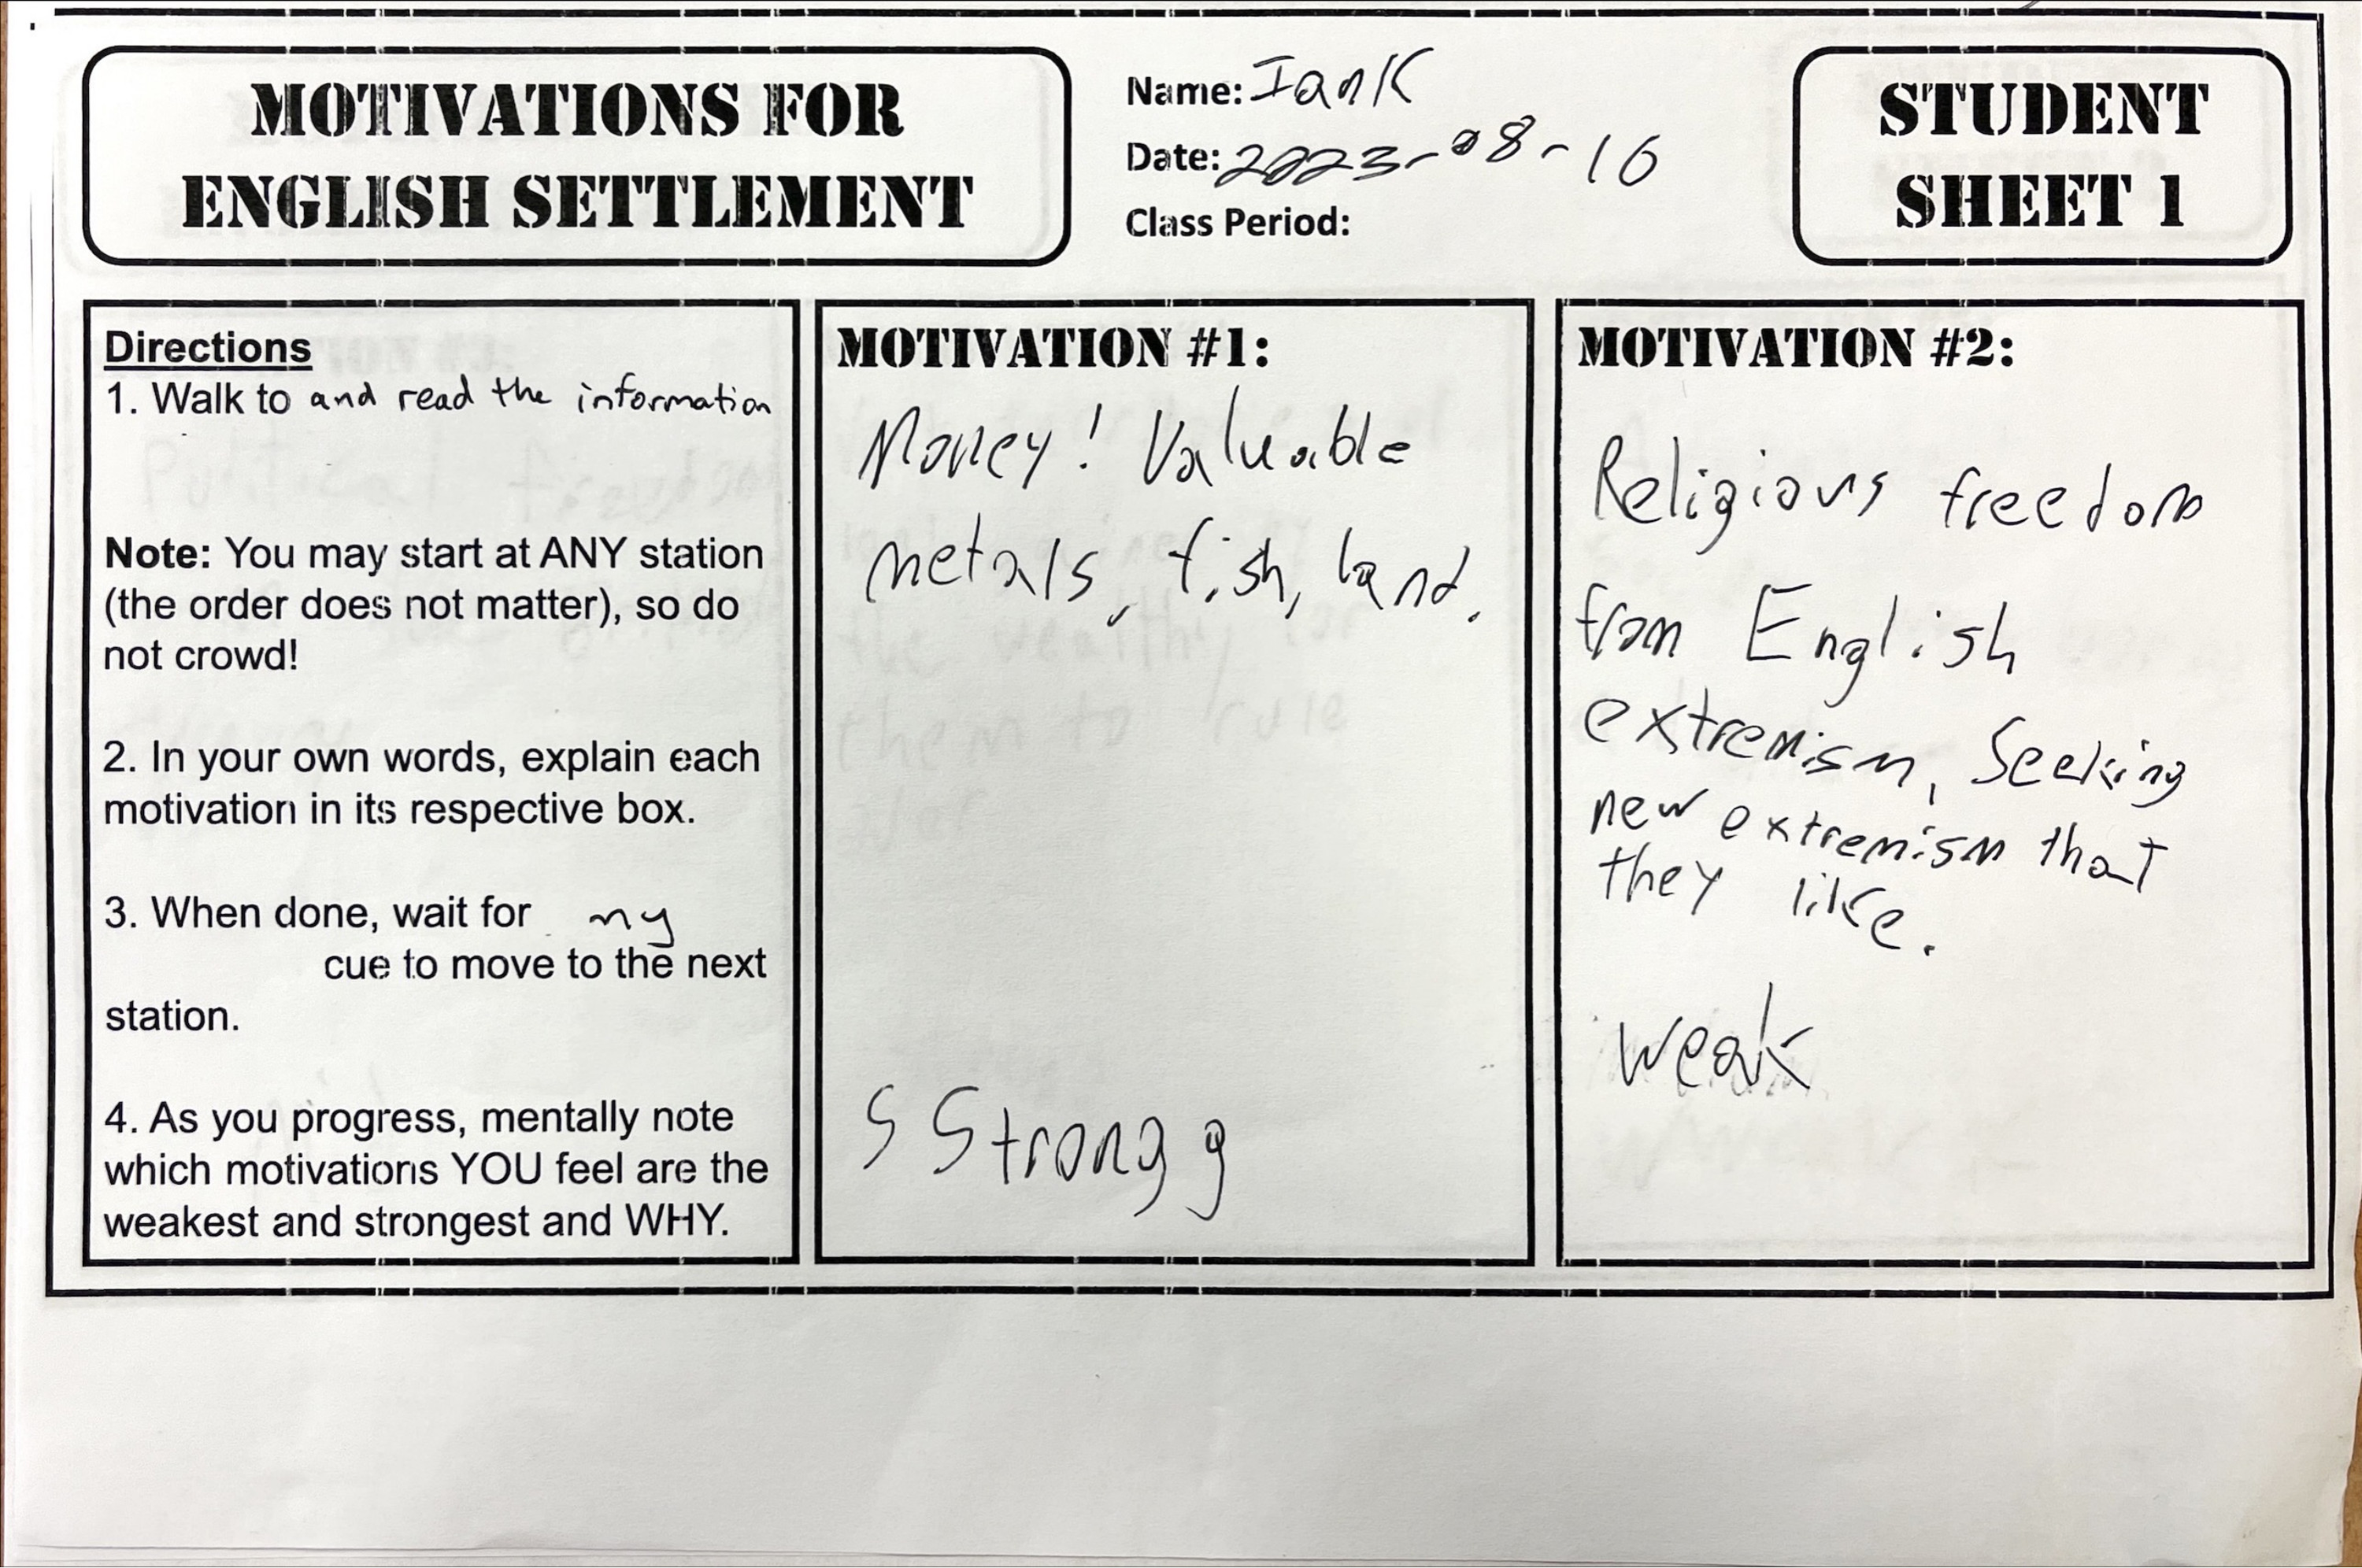 MOTIVATIONS FOR
ENGLISH SETTLEMENT
Name: Ian K
Date: 2023-08-16
Class Period:
STUDENT
SHEET 1
Directions
1. Walk to and read the information
Note: You may start at ANY station
(the order does not matter), so do
not crowd!
2. In your own words, explain each
motivation in its respective box.
3. When done, wait for my
cue to move to the next
station.
4. As you progress, mentally note
which motivations YOU feel are the
weakest and strongest and WHY.
MOTIVATION #1:
Money! Valuable
metals, fish, land.
S Strong g
MOTIVATION #2:
Religious freedom
from English
extremism, Seeking
new extremism that
they like.
weak